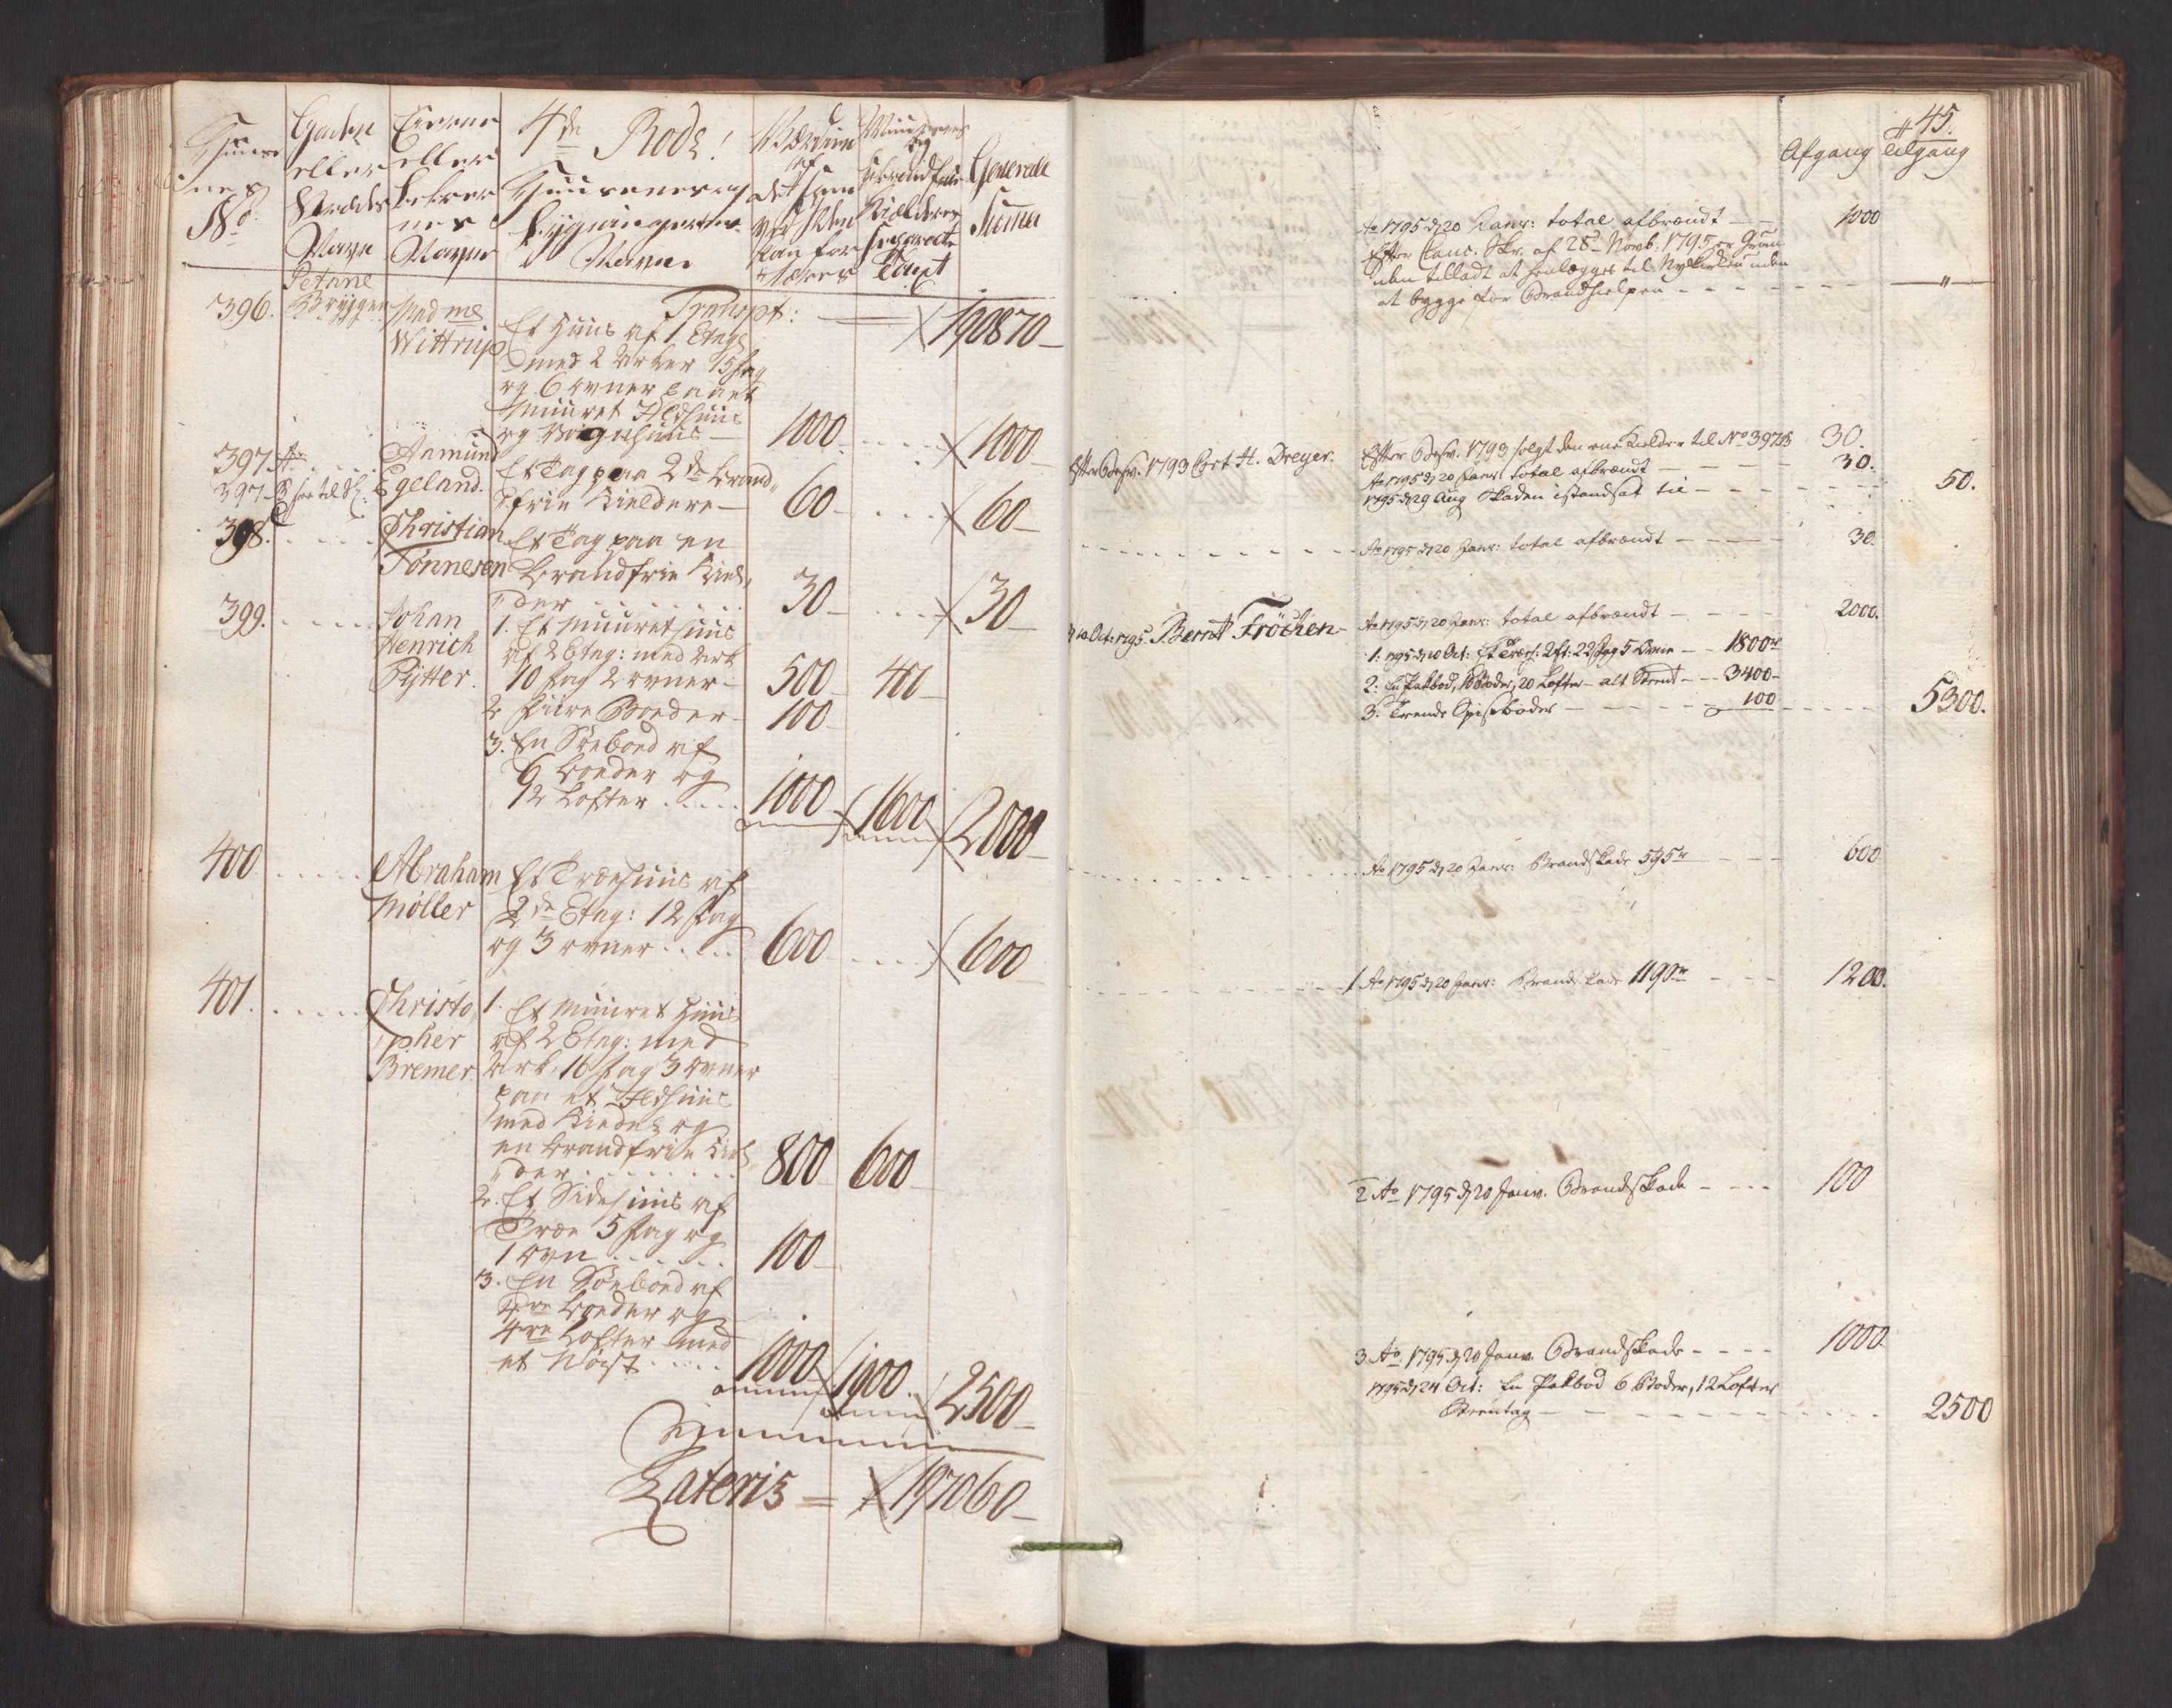 Huuse
nes
No.
Gaden
eller
Stædets
Navn
Eierne
eller
Beboer
nes
Navne
4de Rode!
Huusenes og
Bygningernes
Navne
Værdien
af
det som
ved Ilden
kan for
tæres
Muurenes
og
brandfrie
Kielderes
separate
Taxt
Generale
Summa
Transpt: 190870
Petane
396. Bryggen Mad me
Wittrup
Et Huus af 1 Etage
med 2 Arker 15 fag
og 6 ovner samt
Muuret Ildhuus
og Vognhuus 1000 1000
397 A. Aamund
Egeland.
397 B see til Sl:
Et Tag paa 2de brand
frie Kieldere 60 60
398. Christian
Tönnesen
Et Tag paa en
brandfrie Kiel
der 30 30
399. Johan
Henrich
Rÿtter.
1. Et muuret huus
af 2 Etag: med Ark
10 fag 2 ovner 500 400
2 fiire Boeder 100
3. En Söeboed af
6 boeder og
12 Lofter 1000 1600 2000
400 Abraham
Möller
Et Træehuus af
2de Etag: 12 fag
og 3 ovner 600 600
401. Christo
pher
Bremer.
1. Et muuret huus
af 2 Etag: med
Ark, 16 fag 3 ovner
paa et Ildhuus
med Kielder og
en brandfrie Kiel
der 800 600
2. Et Sidehuus af
Træe 5 fag og
1 ovn 100
3. En Söeboed af
boeder og
4re Lofter med
et Nögst 1000 1900. 2500
Summa
Lateris = 197060
45.
Afgang Tilgang
Ao 1795 d. 20 Janr: total afbrændt 1000
Efter Canc. Skr. af 28d Novb: 1795 er Grun
den tilladt at henlægges til Nykirken uden
at bygge for Brandhielpen "
Efter Besv. 1793 Cort H. Dreyer.
Efter Besv. 1793 solgt den ene Kielder til No 397 B 30.
Ao 1795 d. 20 Janr: total afbrændt 30.
1795 d. 29 Aug Skaden istandsat til 50.
Ao 1795 d. 20 Janr: total afbrændt 30.
d. 10 Oct: 1795. Bernt Fröchen
Ao 1795 d. 20 Janr: total afbrændt 2000.
1: 1795 d. 10 Oct: Et Træeh: 2 Et: 22 Fag 5 Ovne 1800
2: En Pakbod, 10 Boder, 20 Lofter alt Brendt 3400
3. Trende Spiseboder 100 5300.
Ao 1795 d. 20 Janr: Brandskade 595 600
1 Ao 1795 d. 20 Janr: Brandskade 1190 1200.
2 Ao 1795 d. 20 Janr. Brandskade 100
3 Ao 1795 d. 20 Janr. Brandskade 1000.
1795 d. 24 Oct: En Pakbod 6 Boder, 12 Lofter
Steentag 2500